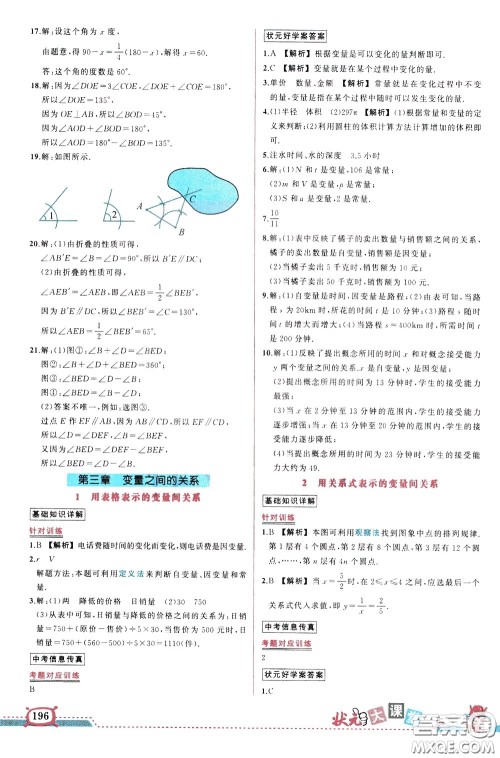 17.解:设这个角为 x 度,
由题意,得 90-x=1/4(180-x),解得 x=60.
答:这个角的度数是60°.
18.解:因为∠DOE=3∠COE,∠DOE+∠COE=180°,
所以∠DOE=135°,
因为 OE⊥AB,所以∠BOD=45°.
因为∠AOD+∠BOD=180°,
所以∠AOD=135°.
19.解:如图所示.
1
2
A
B
C
20.解:(1)由折叠的性质可得,
∠AB'E=∠ABE=∠D=90°,所以 B'E∥DC.
(2)由折叠的性质可得,
∠AEB'=∠AEB,即∠AEB=1/2∠BEB',
因为 B'E∥DC,所以∠BEB'=∠C=130°,
所以∠AEB=1/2∠BEB'=65°.
21.解:(1)图①:∠B+∠D=∠BED,
图②:∠B+∠D+∠BED=360°,
图③:∠BED=∠D-∠B,
图④:∠BED=∠B-∠D.
(2)答案不唯一,例如:选图③
过点 E 作 EF∥AB,因为 AB∥CD,所以 EF∥CD,
所以∠D=∠DEF,∠B=∠BEF,
所以∠BED=∠DEF-∠BEF=∠D-∠B.
第三章 变量之间的关系
1 用表格表示的变量间关系
基础知识详解
针对训练
1.B 【解析】电话费随时间的变化而变化,则电话费是因变量.
2.r V
解题方法:本题可利用定义法来判断自变量、因变量和常量.
3.解:(1)两 降低的价格 日销量 (2)30 750
(3)从表中可知,日销量与降低的价格之间的关系为:日销量=750+(原价-售价)÷5×30,当售价为 500 元时,日销量=750+(560-500)÷5×30=750+60÷5×30=1110(件).
中考信息传真
考题对应训练
B
状元好学案答案
1.A 【解析】根据变量是可以变化的量判断即可.
2.C 【解析】变量就是在某个过程中变化的量.
3.单价 数量、金额 【解析】常量就是在变化过程中不变的量,变量是指在某个过程中随时可以发生变化的量.
4.(1)半径 体积 (2)297π 【解析】(1)根据常量、变量的定义来判断;(2)利用圆柱的体积计算方法计算增加的体积即可.
5.注水时间、水的深度 3.5小时
6.解:(1)N 和 t 是变量,106 是常量;
(2)m 和 V 是变量,ρ 是常量;
(3)S 和 n 是变量,180 是常量.
7.10/11
8.解:(1)表中反映了橘子的卖出数量与销售额之间的关系,橘子的卖出数量是自变量,销售额是因变量;
(2)当橘子卖出 5 千克时,销售额为 10 元;
(3)当橘子卖出 50 千克时,销售额为 100 元.
9.解:(1)自变量是时间,因变量是路程;(2)由表可知,当路程 s 为 20km 时,所花时间 t 是 10 分钟;(3)随路程 s 增大而时间 t 增大而增大;(4)当路程 s=400km 时,所需时间 t 是 200 分钟.
10.解:(1)提出概念所用的时间 x 和对概念的接受能力 y 两个变量之间的关系;
(2)当提出概念所用的时间为 13 分钟时,学生的接受能力最强;
(3)当 x 在 2 分钟至 13 分钟的范围内,学生的接受能力逐步增强;当 x 在 13 分钟至 20 分钟的范围内,学生的接受能力逐步降低;
(4)当提出概念所用的时间为 23 分钟时,学生的接受能力大约为 49.
2 用关系式表示的变量间关系
基础知识详解
针对训练
1.B 【解析】本题可利用观察法找到图象中点的排列规律.第 1 层有 4 个圆点,第 2 层有 8 个圆点,第 3 层有 12 个圆点,……第 n 层有 4n 个圆点.
2.B 【解析】当 x=5/2 时,在 2≤x≤4 之间,所以将 x 值代入第三个关系式代入求值,即 y=
中考信息传真
考题对应训练
2
状元好学案答案
1.C
196
状元大课堂